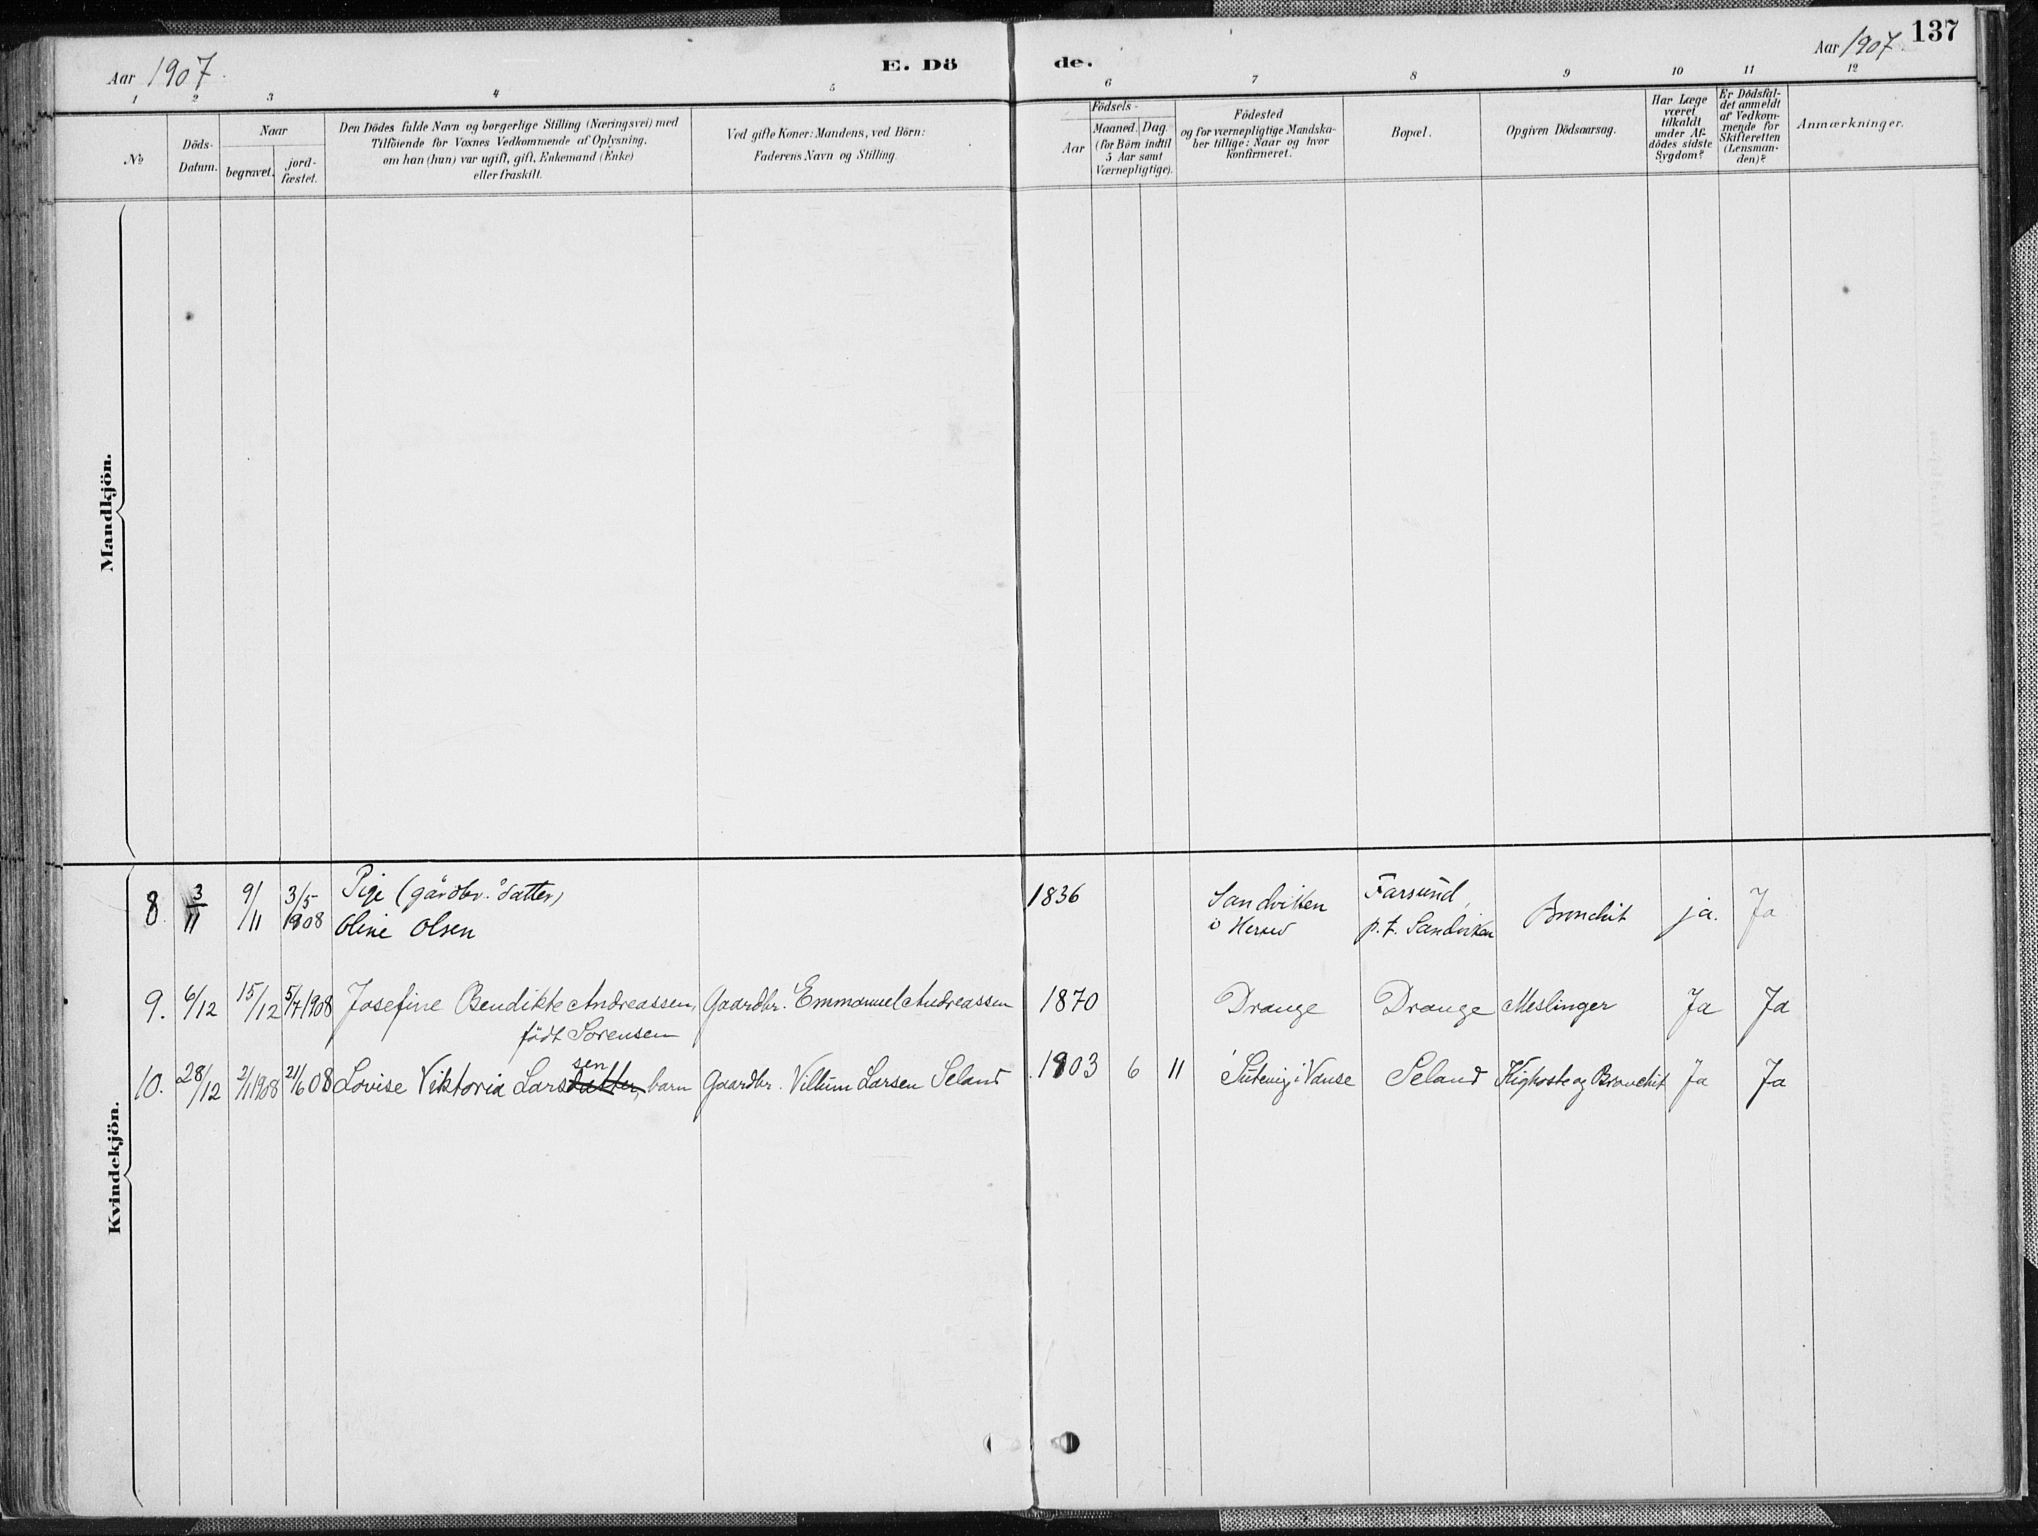 Aar 1907.
E. Dö
de.
Aar 1907.
137
1 2 3 4 5 6 7 8 9 10 11 12
№
Döds-
Datum.
Naar
begravet.
jord-
fæstet.
Den Dödes fulde Navn og borgerlige Stilling (Næringsvei) med
Tilföiende for Voxnes Vedkommende af Oplysning,
om han (hun) var ugift, gift, Enkemand (Enke)
eller fraskilt.
Ved gifte Koner: Mandens, ved Börn:
Faderens Navn og Stilling.
Födsels-
Aar
Maaned. Dag.
(for Börn indtil
5 Aar samt
Værnepligtige).
Födested
og for værnepligtige Mandska-
ber tillige: Naar og hvor
konfirmeret.
Bopæl.
Opgiven Dödsaarsag.
Har Læge
været
tilkaldt
under Af-
dödes sidste
Sygdom?
Er Dödsfal-
det anmeldt
af Vedkom-
mende for
Skifteretten
(Lensman-
den)?
Anmærkninger.
Mandkjön.
Kvindekjön.
8. 3/11 9/11 3/5 1908 Pige (gårdbr. datter)
Oline Olsen
1836 Sandviken
i
Farsund,
p.t. Sandviken
Bronchit ja. Ja
9. 6/12 15/12 5/7 1908 Josefine Bendikte Andreassen,
födt Sörensen
Gaardbr. Emmanuel Andreassen 1870 Drange Drange Meslinger Ja Ja
sen
10. 28/12 2/1 1908 21/6 08 Lovise Viktoria Larsdatter, barn Gaardbr. Villum Larsen Seland 1903 6 11 i Vanse Seland Kighoste og Bronchit Ja Ja